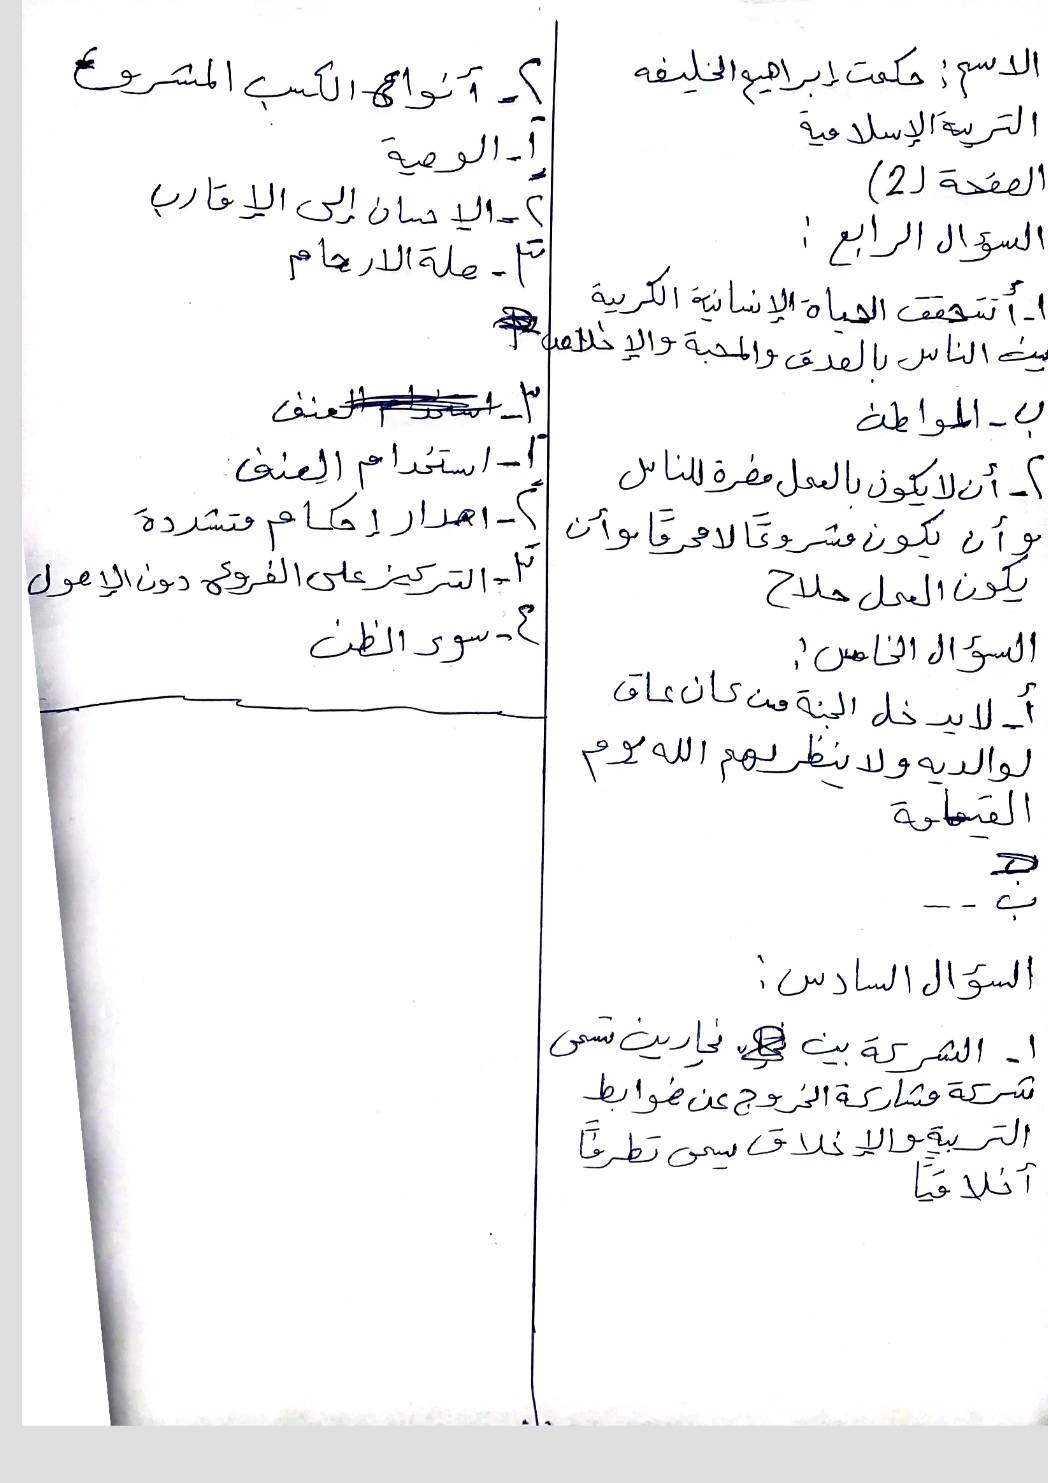 الاسم: حكمت إبراهيم الخليفه
التربية الإسلامية
الصفحة (2)
السؤال الرابع:
١- أ تتحقق الحياة الإنسانية الكريمة
بين الناس بالصدق والمحبة والإخلاص
ب- المواطنة
٢- أن لا يكون بالعمل مضرة للناس
و أن يكون مشروعًا لا محرمًا وأن
يكون العمل صلاح
السؤال الخامس:
أ- لا يدخل الجنة من كان عاق
لوالديه ولا ينظر لهم الله يوم
القيامة
ب --
السؤال السادس:
١- الشركة بين نجارين تسمى
شركة مشاركة الخروج عن ضوابط
التربية والإخلاق يسمى تطرفًا
أخلاقيًا
٢- أنواع الكسب المشروع
١- الوصية
٢- الإحسان إلى الإقارب
٣- صلة الارحام
٣- استخدام العنف
١- استخدام العنف
٢- اصدار إحكام متشددة
٣- التركيز على الفروع دون الإصول
٤- سوء الظن